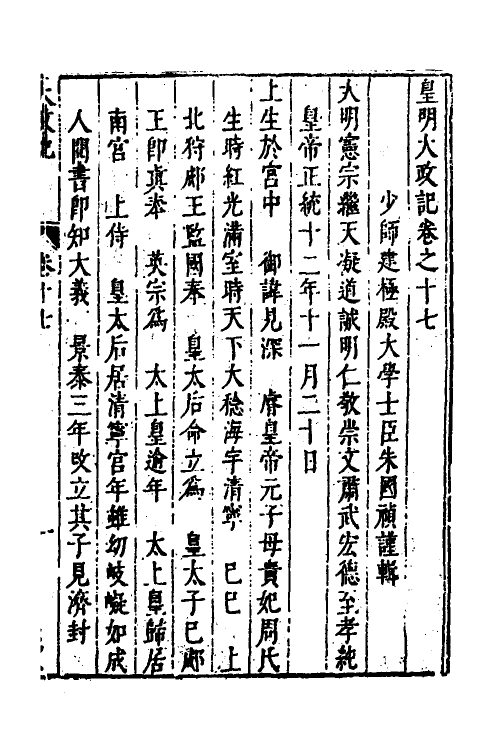 皇明大政記卷之十七
少師建極殿大學士臣朱國禎謹輯
大明憲宗繼天凝道誠明仁敬崇文肅武宏德至孝純
皇帝正統十二年十一月二十日
上生於宮中 御諱見深 睿皇帝元子母貴妃周氏
生時紅光滿室時天下大稔海宇清寧 己巳 上
北狩郕王監國奉 皇太后命立爲 皇太子已郕
王即真奉 英宗爲 太上皇逾年 太上皇歸居
南宮 上侍 皇太后居清寧宮年雖幼岐嶷如成
人閱書即知大義 景泰三年改立其子見濟封
大政記 卷十七